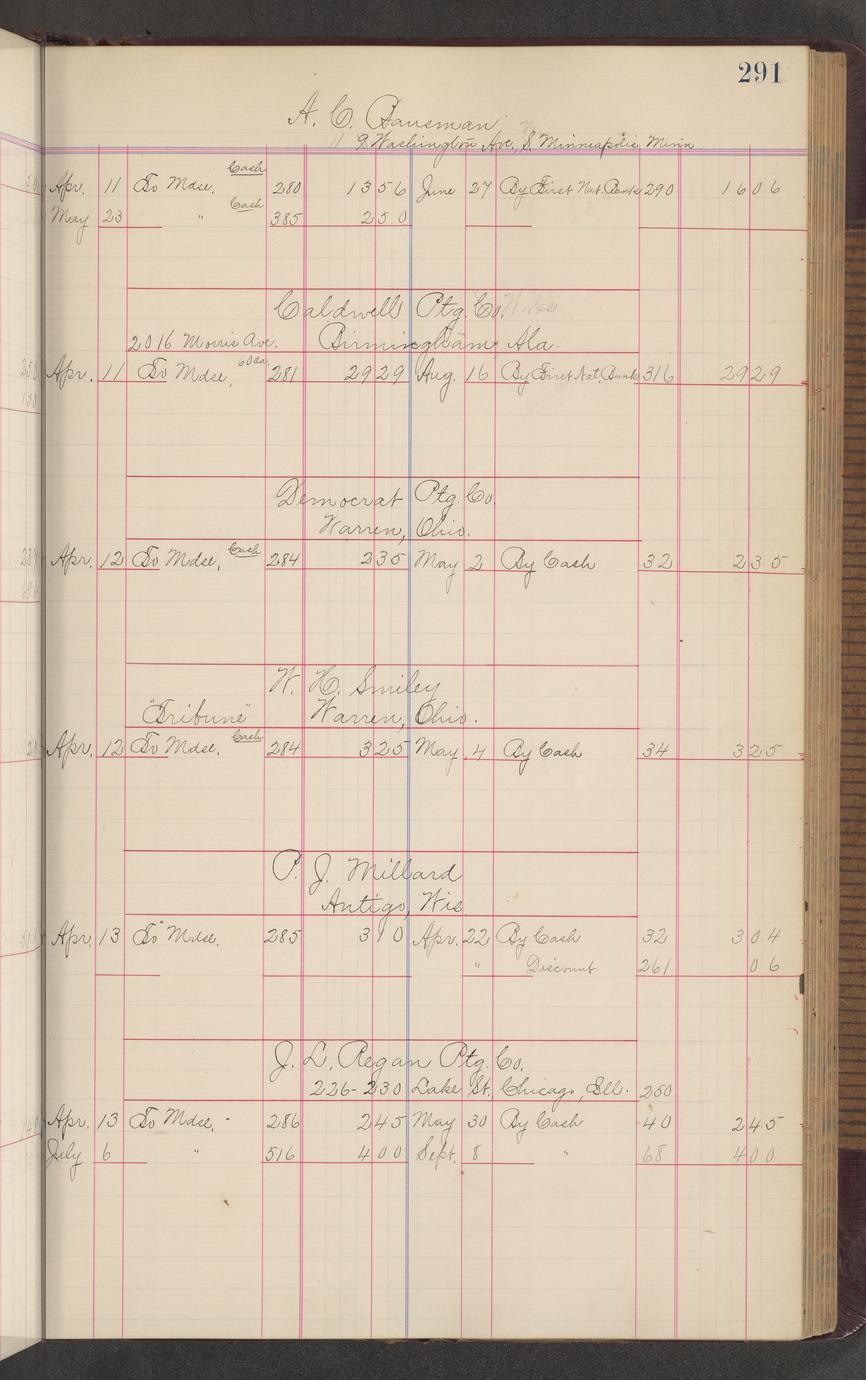 291
A. C. Bausman
9 Washington Ave. S. Minneapolis Minn
Apr. 11 To Mdse. Cash 280 13 56 June 27 By First Nat. Bank 290 16 06
May 23 " Cash 385 2 50
Caldwell Ptg. Co.
2016 Morris Ave. Birmingham Ala.
Apr. 11 To Mdse, 60 da. 281 29 29 Aug. 16 By First Nat. Bank 316 29 29
Democrat Ptg. Co.
Warren, Ohio.
Apr. 12 To Mdse, Cash 284 2 35 May 2 By Cash 32 2 35
W. H. Smiley
"Tribune" Warren, Ohio.
Apr. 12 To Mdse. Cash 284 3 25 May 4 By Cash 34 3 25
P. J. Millard
Antigo, Wis
Apr. 13 To Mdse. 285 3 10 Apr. 22 By Cash 32 3 04
" Discount 261 06
J. L. Regan Ptg. Co.
226-230 Lake St., Chicago, Ill. 250
Apr. 13 To Mdse, - 286 2 45 May 30 By Cash 40 2 45
July 6 " 516 4 00 Sept. 8 " 68 4 00